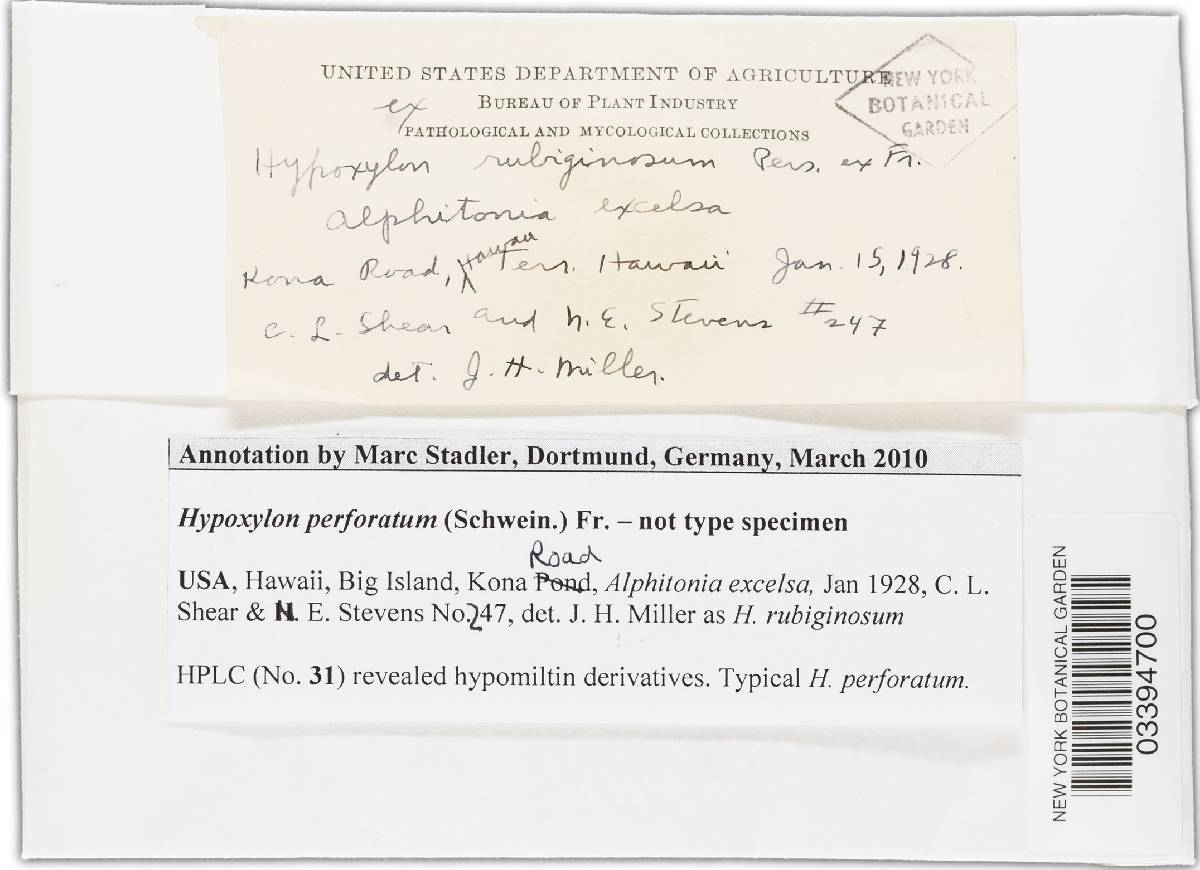 UNITED STATES DEPARTMENT OF AGRICULTURE
NEW YORK
BOTANICAL
GARDEN
ex
BUREAU OF PLANT INDUSTRY
PATHOLOGICAL AND MYCOLOGICAL COLLECTIONS
Hypoxylon rubiginosum Pers. ex Fr.
Alphitonia excelsa
Kona Road, Hawaii Terr. Hawaii Jan. 15, 1928.
C. L. Shear and N. E. Stevens #247
det. J. H. Miller.
Annotation by Marc Stadler, Dortmund, Germany, March 2010
Hypoxylon perforatum (Schwein.) Fr. – not type specimen
Road
USA, Hawaii, Big Island, Kona Pond, Alphitonia excelsa, Jan 1928, C. L.
Shear & N. E. Stevens No.247, det. J. H. Miller as H. rubiginosum
HPLC (No. 31) revealed hypomiltin derivatives. Typical H. perforatum.
NEW YORK BOTANICAL GARDEN
03394700